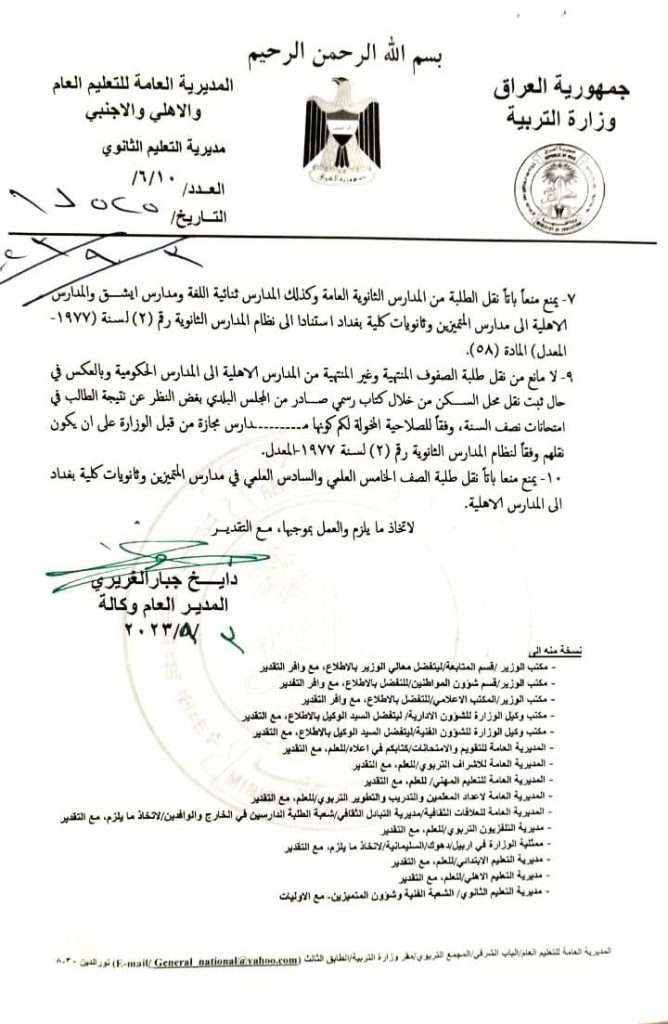 بسم الله الرحمن الرحيم
جمهورية العراق
وزارة التربية
المديرية العامة للتعليم العام
والاهلي والاجنبي
مديرية التعليم الثانوي
العدد/ ٦/١٠/
التاريخ/
٧- يمنع منعاً باتاً نقل الطلبة من المدارس الثانوية العامة وكذلك المدارس ثنائية اللغة ومدارس ايشق والمدارس
الاهلية الى مدارس المتميزين وثانويات كلية بغداد استنادا الى نظام المدارس الثانوية رقم (٢) لسنة (١٩٧٧-
المعدل) المادة (٥٨).
٩- لا مانع من نقل طلبة الصفوف المنتهية وغير المنتهية من المدارس الاهلية الى المدارس الحكومية وبالعكس في
حال ثبت نقل محل السكن من خلال كتاب رسمي صادر من المجلس البلدي بغض النظر عن نتيجة الطالب في
امتحانات نصف السنة، وفقاً للصلاحية المخولة لكم كونها مـــــــــدارس مجازة من قبل الوزارة على ان يكون
نقلهم وفقاً لنظام المدارس الثانوية رقم (٢) لسنة ١٩٧٧-المعدل.
١٠- يمنع منعا باتاً نقل طلبة الصف الخامس العلمي والسادس العلمي في مدارس المتميزين وثانويات كلية بغداد
الى المدارس الاهلية.
لاتخاذ ما يلزم والعمل بموجبها، مع التقديـر
دايـــخ جبار الغريري
المديـر العام وكالة
٢٠٢٣/ /
نسخة منه الى
- مكتب الوزير /قسم المتابعة/ليتفضل معالي الوزير بالاطلاع، مع وافر التقدير
- مكتب الوزير/قسم شؤون المواطنين/للتفضل بالاطلاع، مع وافر التقدير
- مكتب الوزير/المكتب الاعلامي/للتفضل بالاطلاع، مع وافر التقدير
- مكتب وكيل الوزارة للشؤون الادارية/ ليتفضل السيد الوكيل بالاطلاع، مع التقدير
- مكتب وكيل الوزارة للشؤون الفنية/ليتفضل السيد الوكيل بالاطلاع، مع التقدير
- المديرية العامة للتقويم والامتحانات/كتابكم في اعلاه/للعلم، مع التقدير
- المديرية العامة للاشراف التربوي/للعلم، مع التقدير
- المديرية العامة للتعليم المهني/ للعلم، مع التقدير
- المديرية العامة لاعداد المعلمين والتدريب والتطوير التربوي/للعلم، مع التقدير
- المديرية العامة للعلاقات الثقافية/مديرية التبادل الثقافي/شعبة الطلبة الدارسين في الخارج والوافدين/لاتخاذ ما يلزم، مع التقدير
- مديرية التلفزيون التربوي/للعلم، مع التقدير
- ممثلية الوزارة في اربيل/دهوك/السليمانية/لاتخاذ ما يلزم، مع التقدير
- مديرية التعليم الابتدائي/للعلم، مع التقدير
- مديرية التعليم الاهلي/للعلم، مع التقدير
- مديرية التعليم الثانوي/ الشعبة الفنية وشؤون المتميزين- مع الاوليات
المديرية العامة للتعليم العام/الباب الشرقي/المجمع التربوي/مقر وزارة التربية/الطابق الثالث (E-mail/ General_national@yahoo.com) نورالدين ٣٠-٨